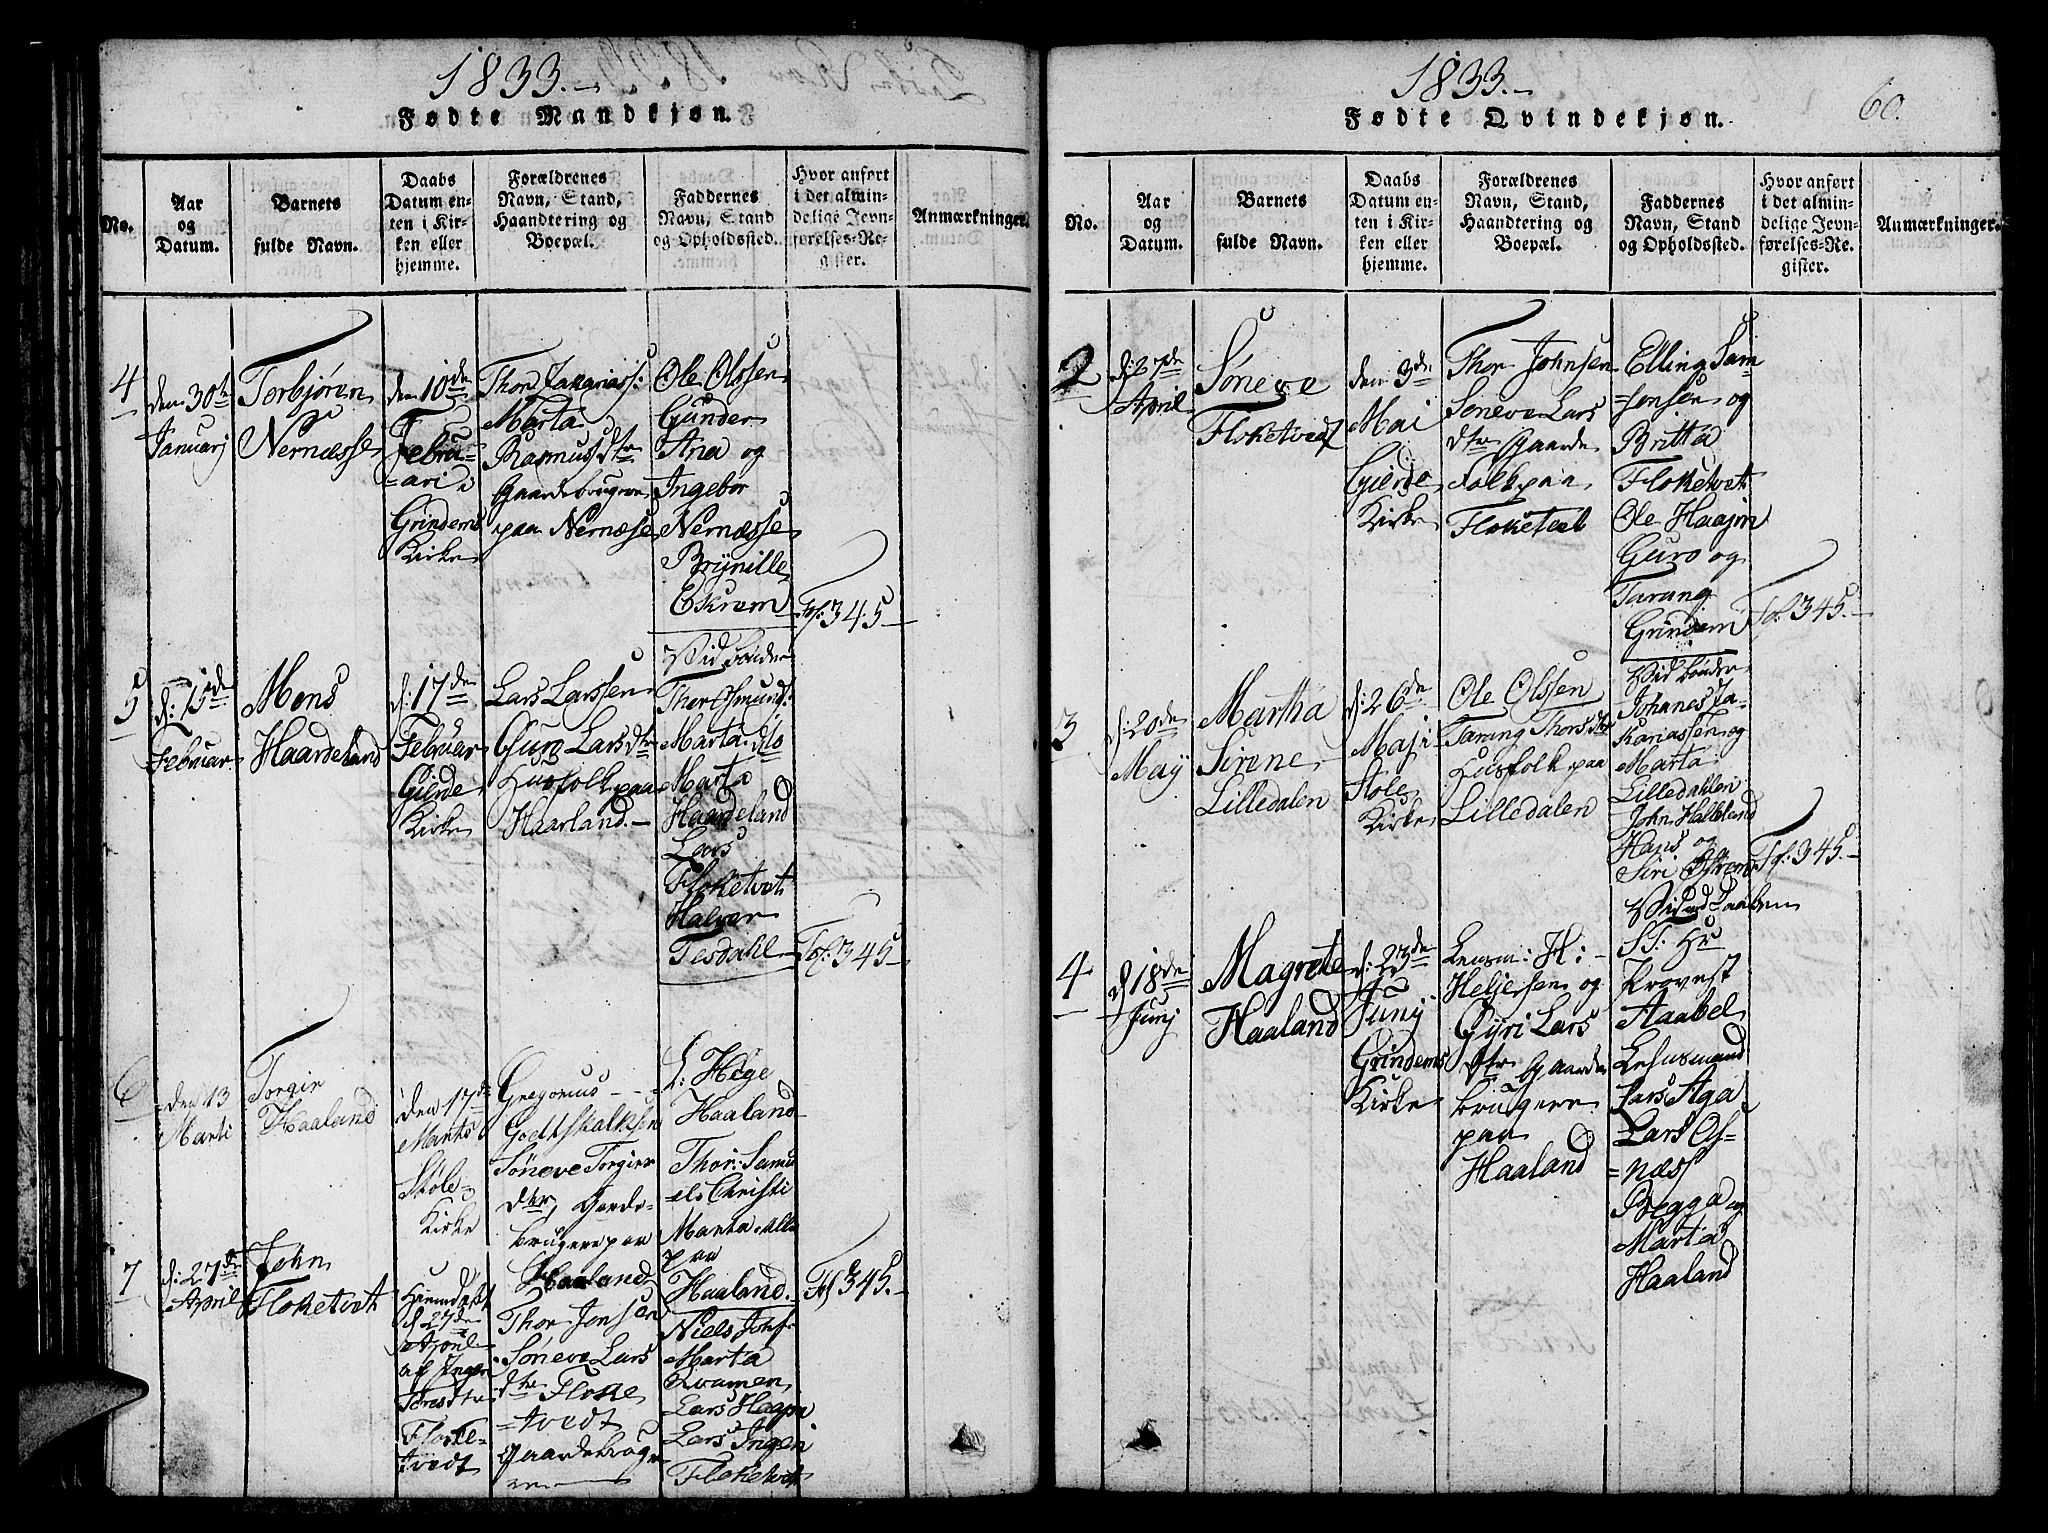 1833.
Fødte Mandkjøn.
No.
Aar
og
Datum.
Barnets
fulde Navn.
Daabs
Datum en-
ten i Kir-
ken eller
hjemme.
Forældrenes
Navn, Stand,
Haandtering og
Boepæl.
Faddernes
Navn, Stand
og Opholdssted.
Hvor anført
i det almin-
delige Jevn-
førelses-Re-
gister.
Anmærkninger.
4
den 30te
Januarj
Torbjøren
Nernæsse
den 10de
Febru-
=ari i
Grindems
Kirke
Thor Zakariass:
Marta
Rasmusdtr
Gaardebrugere
paa Nernæse
Ole Olssen
Gunder
Ana og
Ingebor
Nernæsse
Brynille
Eskrem
Fol: 345
5
d: 15de
Februar
Mons
Haardeland
d: 17de
Februar
Gierde
Kirke
Lars Larssen
Guro Larsdtr
Husfolk paa
Haarland.
Vidbønder
Thor Osmunds:
Marta do
Marta
Haardeland
Lars
Floketvet
Halver
Tesdahl
Fol: 345
6
den 13
Marti
Torgir
Haaland
den 17de
Marts
Stole
Kirke
Gregorius
Godtskalksen
Søneve Torgier
dtr, Garde-
brugere paa
Haaland
L: Hege
Haaland
Thor: Samu
els Christi
Marta Alle
paa
Haaland.
Fol 345.
7
d: 27de
April
John
Floketvet
Hiemdøbt
d 27de
April
af Inger
Toresdtr
Floke-
tvedt
Thor Jonsen
Søneve Lars
dtr Floke
=tvedt
Gaardebruge
re
Niels Johs
Marta
Kvamen
Lars Haajn
Lars Inger
Floketvet
1833.
60.
Fødte Qvindekjøn.
No.
Aar
og
Datum.
Barnets
fulde Navn.
Daabs
Datum en-
ten i Kir-
ken eller
hjemme.
Forældrenes
Navn, Stand,
Haandtering og
Boepæl.
Faddernes
Navn, Stand
og Opholdssted.
Hvor anført
i det almin-
delige Jevn-
førelses-Re-
gister.
Anmærkninger.
2
d: 27de
April
Søneve
Floketvedt
den 3de
Mai
Gierde
Kirke
Thor Johnsen
Søneve Lars
dtr Gaarde
Folk paa
Floketvet
Elling Sam-
=sonsen og
Britta
Floketvet
Ole Haajn
Guro og
Tarang
Grindem
Fol: 345.
3
d: 20de
May
Martha
Sirene
Lilledalen
d: 26de
Maji
Stole
Kirke
Ole Olssen
Tarang Thorsdtr
Husfolk paa
Lilledalen
Vidbønder
Johanes Za-
kariassen og
Marta
Lilledahlen
John Halleland
Hans og
Siri Østreme
Fol: 345.
4
d 18de
Junj
Magrete
Haaland
d: 23de
Junij
Grindems
Kirke
Lensm: H:
Heljesen og
Gyri Lars
dtr Gaarde
brugere
paa
Haaland
Vid ved Daaben
ST: Hr
Provest
Aabel
Lehnsmand
Lars Aga
Lars Os-
=næss
Begga og
Marta
Haaland